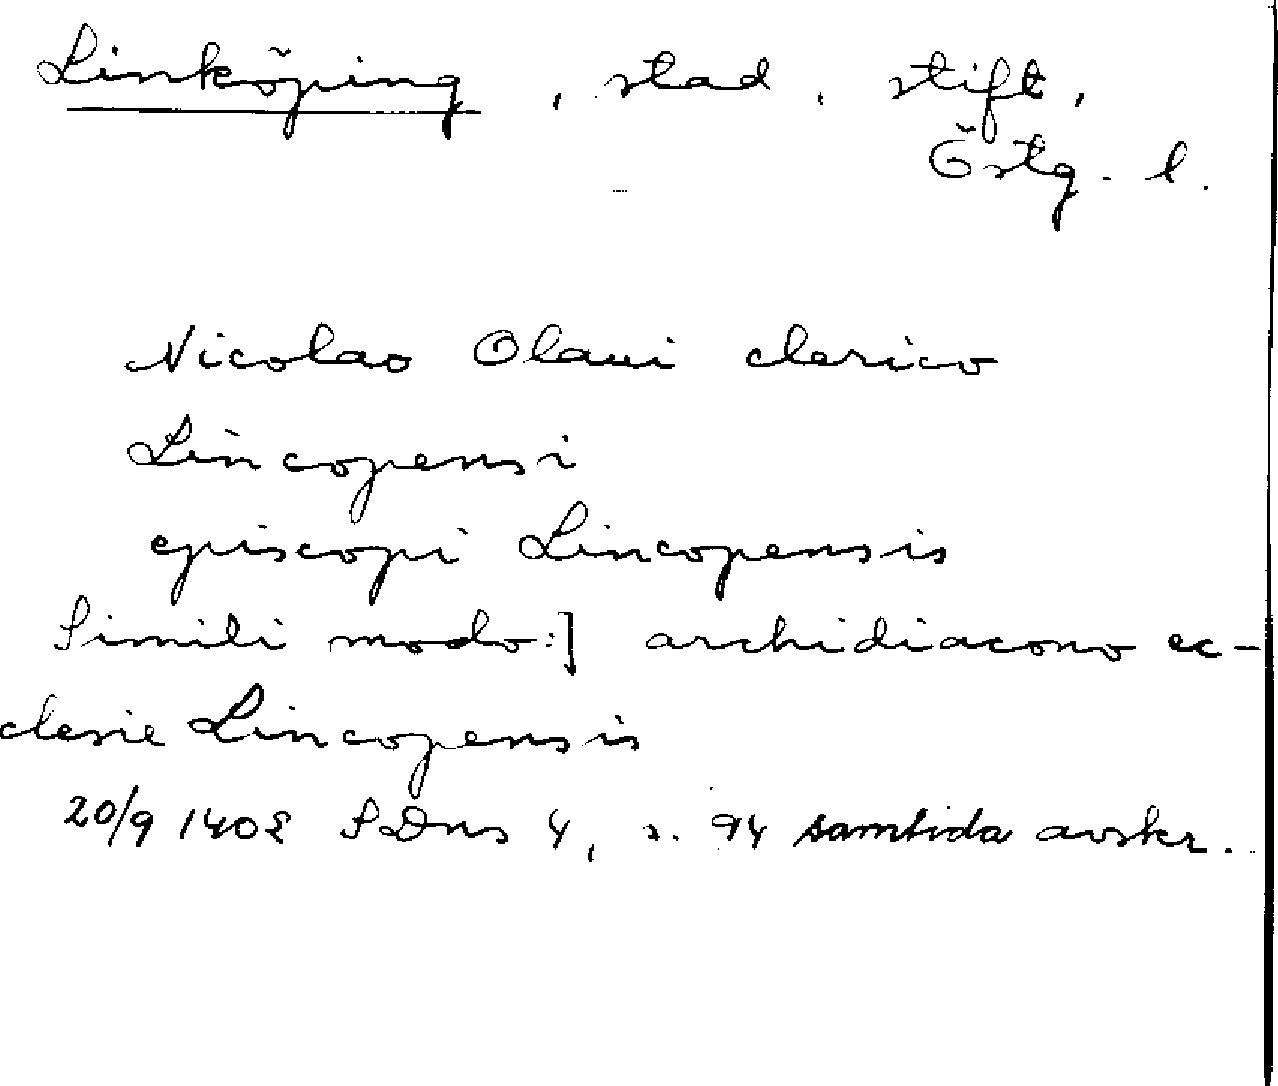 Linköping, stad, stift,
Östg. l.
Nicolao Olaui clerico
Lincopensi
episcopi Lincopensis
Simili modo:] archidiacono ec-
clesie Lincopensis
20/9 1402 SDns 4, s. 94 samtida avskr.